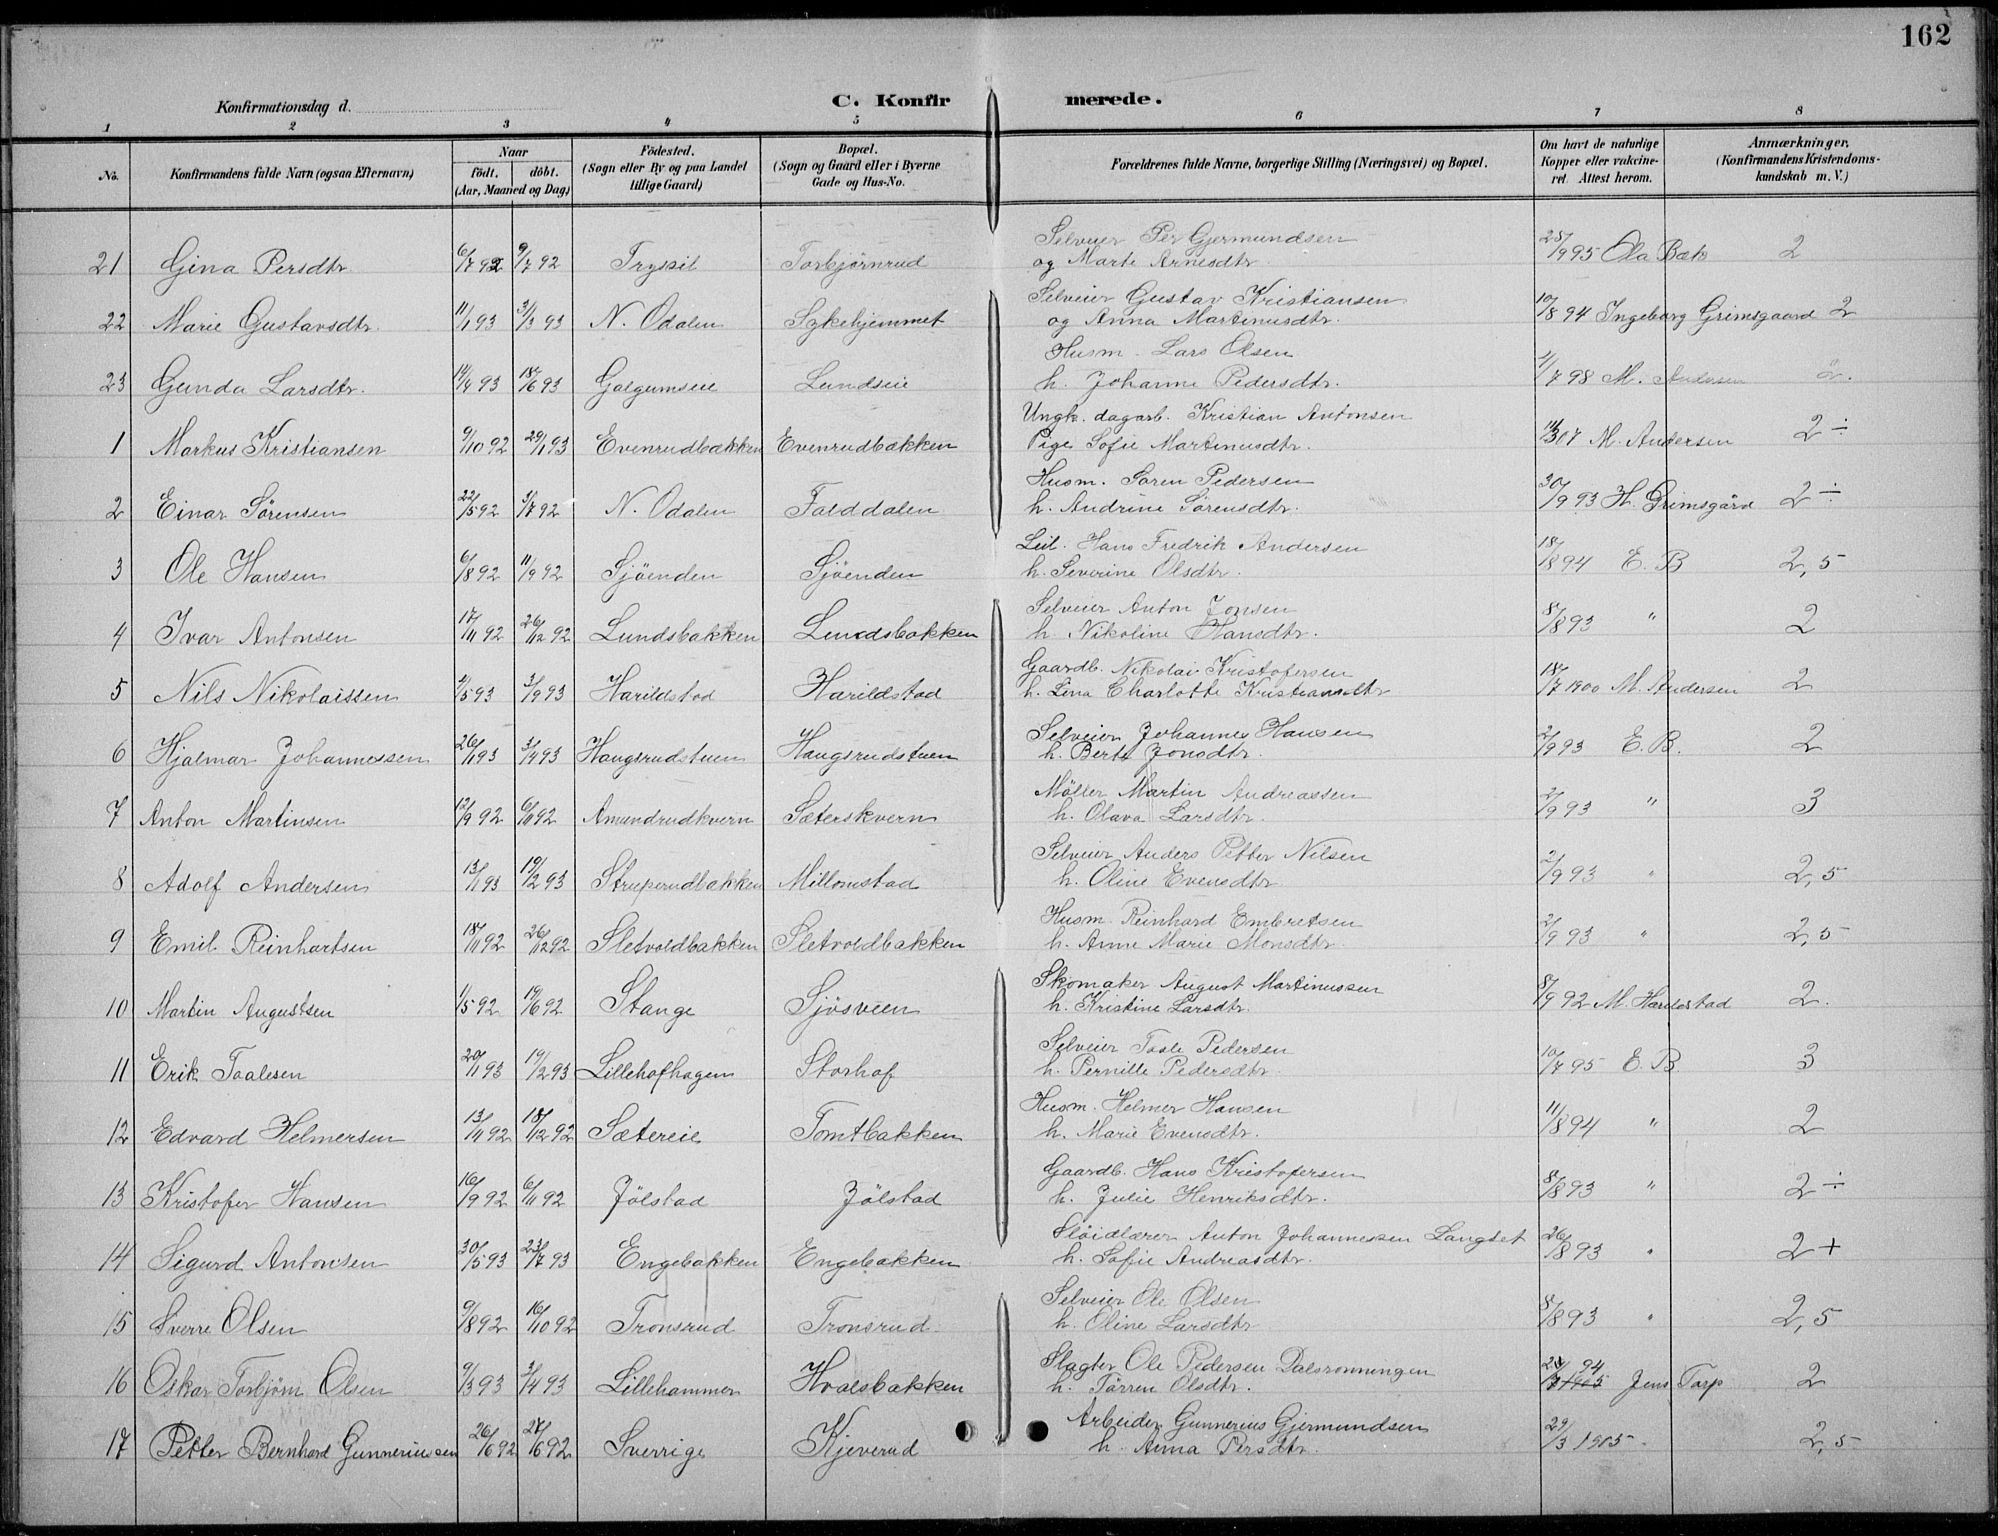 162
Konfirmationsdag d.
C. Konfirmerede.
1 2 3 4 5 6 7 8
No. Konfirmandens fulde Navn (ogsaa Efternavn) Naar født. døbt. (Aar, Maaned og Dag) Fødested. (Sogn eller By og paa Landet tillige Gaard) Bopæl. (Sogn og Gaard eller i Byerne Gade og Hus-No. Forældrenes fulde Navne, borgerlige Stilling (Næringsvei) og Bopæl. Om havt de naturlige Kopper eller vakcineret. Attest herom. Anmærkninger. (Konfirmandens Kristendomskundskab m. V.)
21 Gina Persdtr. 6/7 92 9/7 92 Trysil Torbjørnrud Selveier Per Gjermundsen 25/9 95 Ola Bæk 2
og Marte Arnesdtr.
22 Marie Gustavsdtr. 11/1 93 3/3 93 N. Odalen Sykehjemmet Selveier Gustav Kristiansen 10/8 94 Ingeborg Grimsgaard 2
og Anna Martinusdtr.
23 Gunda Larsdtr. 14/4 93 18/6 93 Galgumseie Lundseie Husm. Lars Olsen /7 98 M. Andersen 2.
h. Johanne Pedersdtr.
1 Markus Kristiansen 9/10 92 29/1 93 Evenrudbakken Evenrudbakken Ungk. dagarb. Kristian Antonsen 07 M. Andersen 2 ÷
Pige Sofie Martinusdtr.
2 Einar Sørensen 22/5 92 3/7 92 N. Odalen Falddalen Husm. Søren Pedersen 30/9 93 H. Grimsgård 2 ÷
h. Andrine Sørensdtr.
3 Ole Hansen 6/8 92 11/9 92 Sjøenden Sjøenden Leil. Hans Fredrik Andersen 18/8 94 E. B 2,5
h. Severine Olsdtr.
4 Ivar Antonsen 17/11 92 26/12 92 Lundsbakken Lundsbakken Selveier Anton Jonsen 8/8 93 " 2
h. Nikoline Hansdtr.
5 Nils Nikolaissen /5 93 3/9 93 Harildstad Harildstad Gaardb. Nikolai Kristofersen 18/7 1900 M. Andersen 2
h. Lina Charlotte Kristiansdtr
6 Hjalmar Johannessen 26/1 93 3/4 93 Haugsrudstuen Haugsrudstuen Selveier Johannes Hansen 2/9 93 E. B. 2
h. Berte Jonsdtr.
7 Anton Martinsen 12/9 92 6/11 92 Amundrudkvern Sæterskvern Møller Martin Andreassen 2/9 93 " 3
h. Olava Larsdtr.
8 Adolf Andersen 13/1 93 19/2 93 Struperudbakken Millomstad Selveier Anders Petter Nilsen 2/9 93 " 2,5
h. Oline Evensdtr.
9 Emil Reinhartsen 18/11 92 26/12 92 Sletvoldbakken Sletvoldbakken Husm. Reinhard Embretsen 2/9 93 " 2,5
h. Anne Marie Monsdtr.
10 Martin Augustsen 1/5 92 19/6 92 Stange Sjøsveen Skomaker August Martinussen 8/9 92 M. Harildstad 2.
h. Kristine Larsdtr.
11 Erik Taalesen 20/1 93 19/2 93 Lillehofhagen Storhof Selveier Taale Pedersen 10/7 95 E. B 3
h. Pernille Pedersdtr.
12 Edvard Helmersen 13/11 92 18/12 92 Sætereie Tomtbakken Husm. Helmer Hansen 11/8 94 " 2
h. Marie Evensdtr.
13 Kristofer Hansen 16/9 92 6/11 92 Jølstad Jølstad Gaardb. Hans Kristofersen 8/8 93 " 2 ÷
h. Julie Henriksdtr.
14 Sigurd Antonsen 30/5 93 23/7 93 Engebakken Engebakken Sløidlærer Anton Johannessen Langset 26/8 93 " 2 +
h. Sofie Andreasdtr.
15 Sverre Olsen 9/8 92 16/10 92 Tronsrud Tronsrud. Selveier Ole Olsen 8/8 93 " 2,5
h. Oline Larsdtr
16 Oskar Torbjørn Olsen 9/3 93 3/4 93 Lillehammer Hvalsbakken Slagter Ole Pedersen Dalsrønningen 94 Jens Tarp 2
h. Tørren Olsdtr.
17 Petter Bernhard Gunneriusen 26/6 92 27/6 92 Sverrige Kjeverud Arbeider Gunnerius Gjermundsen 29/3 1905 2,5
h. Anna Persdtr.